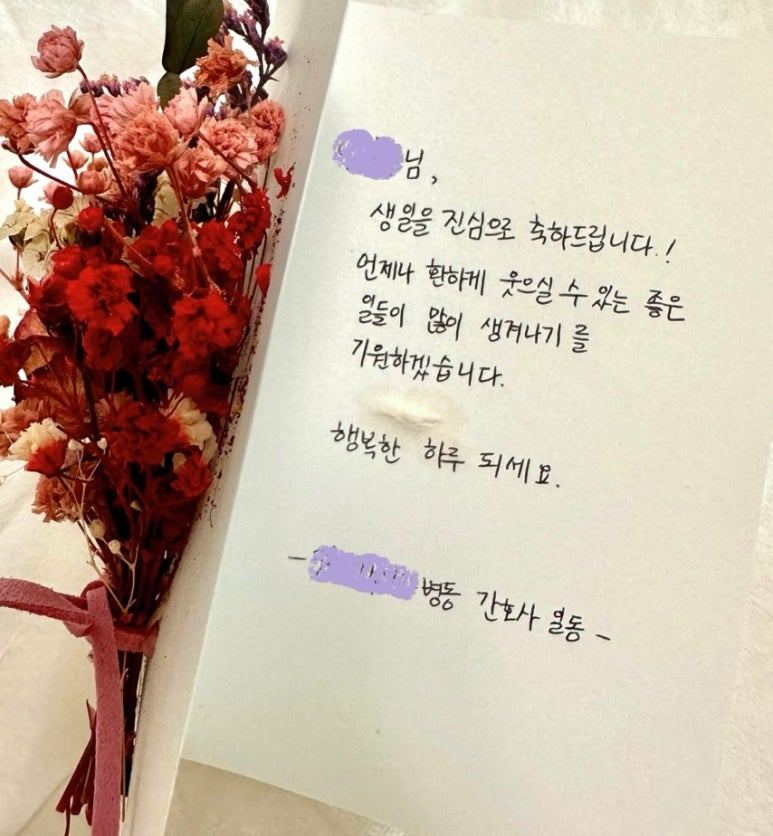 님,
생일을 진심으로 축하드립니다.!
언제나 환하게 웃으실 수 있는 좋은
일들이 많이 생겨나기를
기원하겠습니다.
행복한 하루 되세요.
- 병동 간호사 일동 -